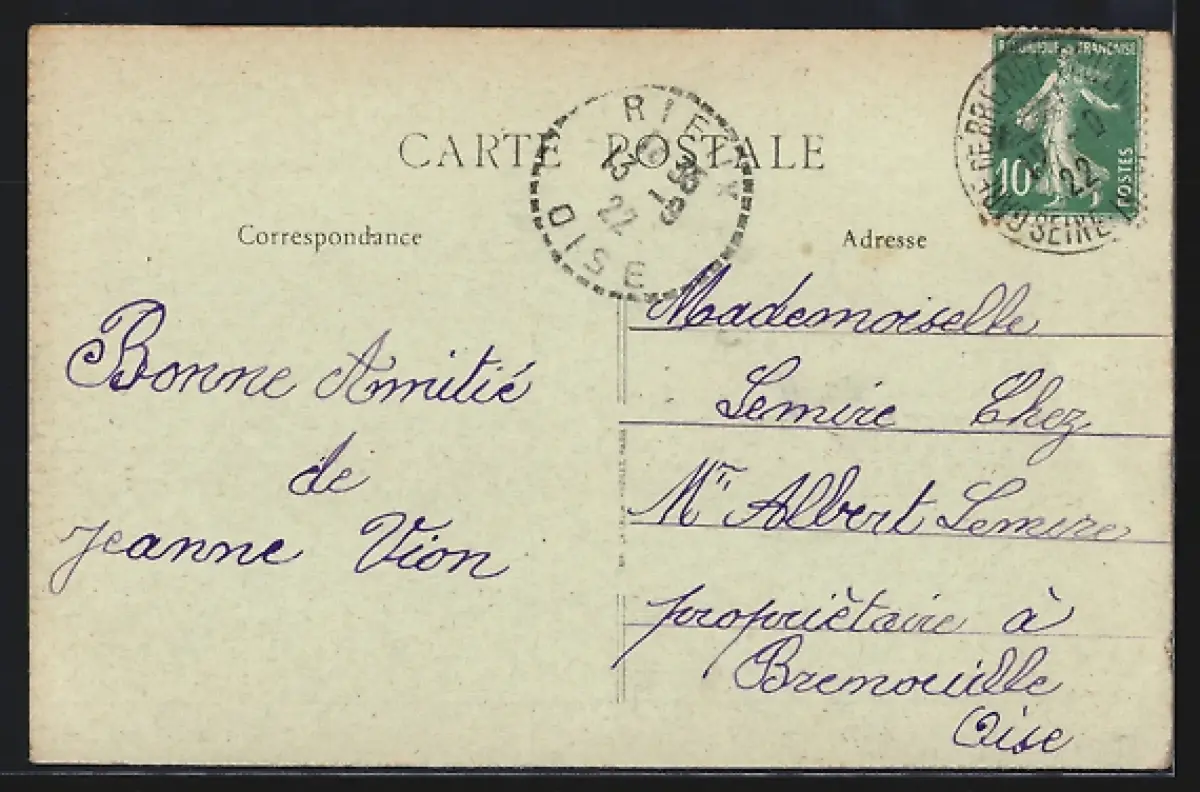 CARTE POSTALE
Correspondance
Adresse
RIEUX
13 -9
22
OISE
REPUBLIQUE FRANCAISE
10c
POSTES
22
SEINE
Bonne Amitié
de
Jeanne Vion
Mademoiselle
Lemire Chez
Mr Albert Lemire
propriètaire à
Brenouille
Oise